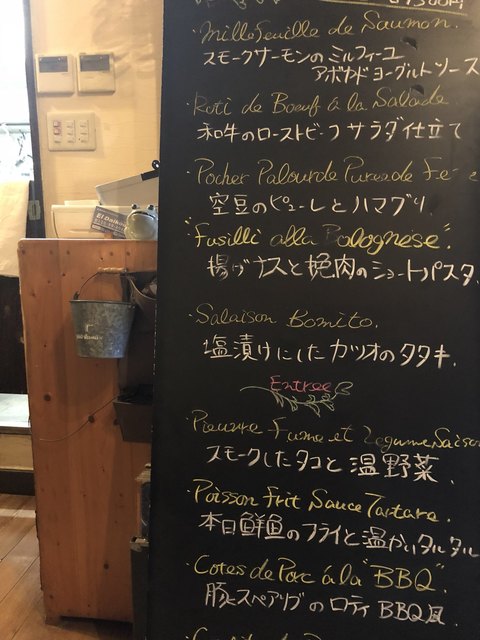 Millefeuille de Saumon.
スモークサーモンの ミルフィーユ
アボカドヨーグルトソース
・Roti de Boeuf á la Salade
和牛のローストビーフ サラダ仕立て
・Pocher Palourde Puree de Fe
空豆のピューレとハマグリ.
・"Fusilli alla Bolognese".
揚げナスと挽肉のショートパスタ.
・Salaison Bonito.
塩漬けにしたカツオのタタキ.
Entree
Pieuvre Fume et Legume Saison
スモークしたタコと 温野菜.
・Poisson Frit Sauce Tartare.
本日鮮魚のフライと温かいタルタル
・Cotes de Porc á la "BBQ".
豚スペアリブの ロティ BBQ風